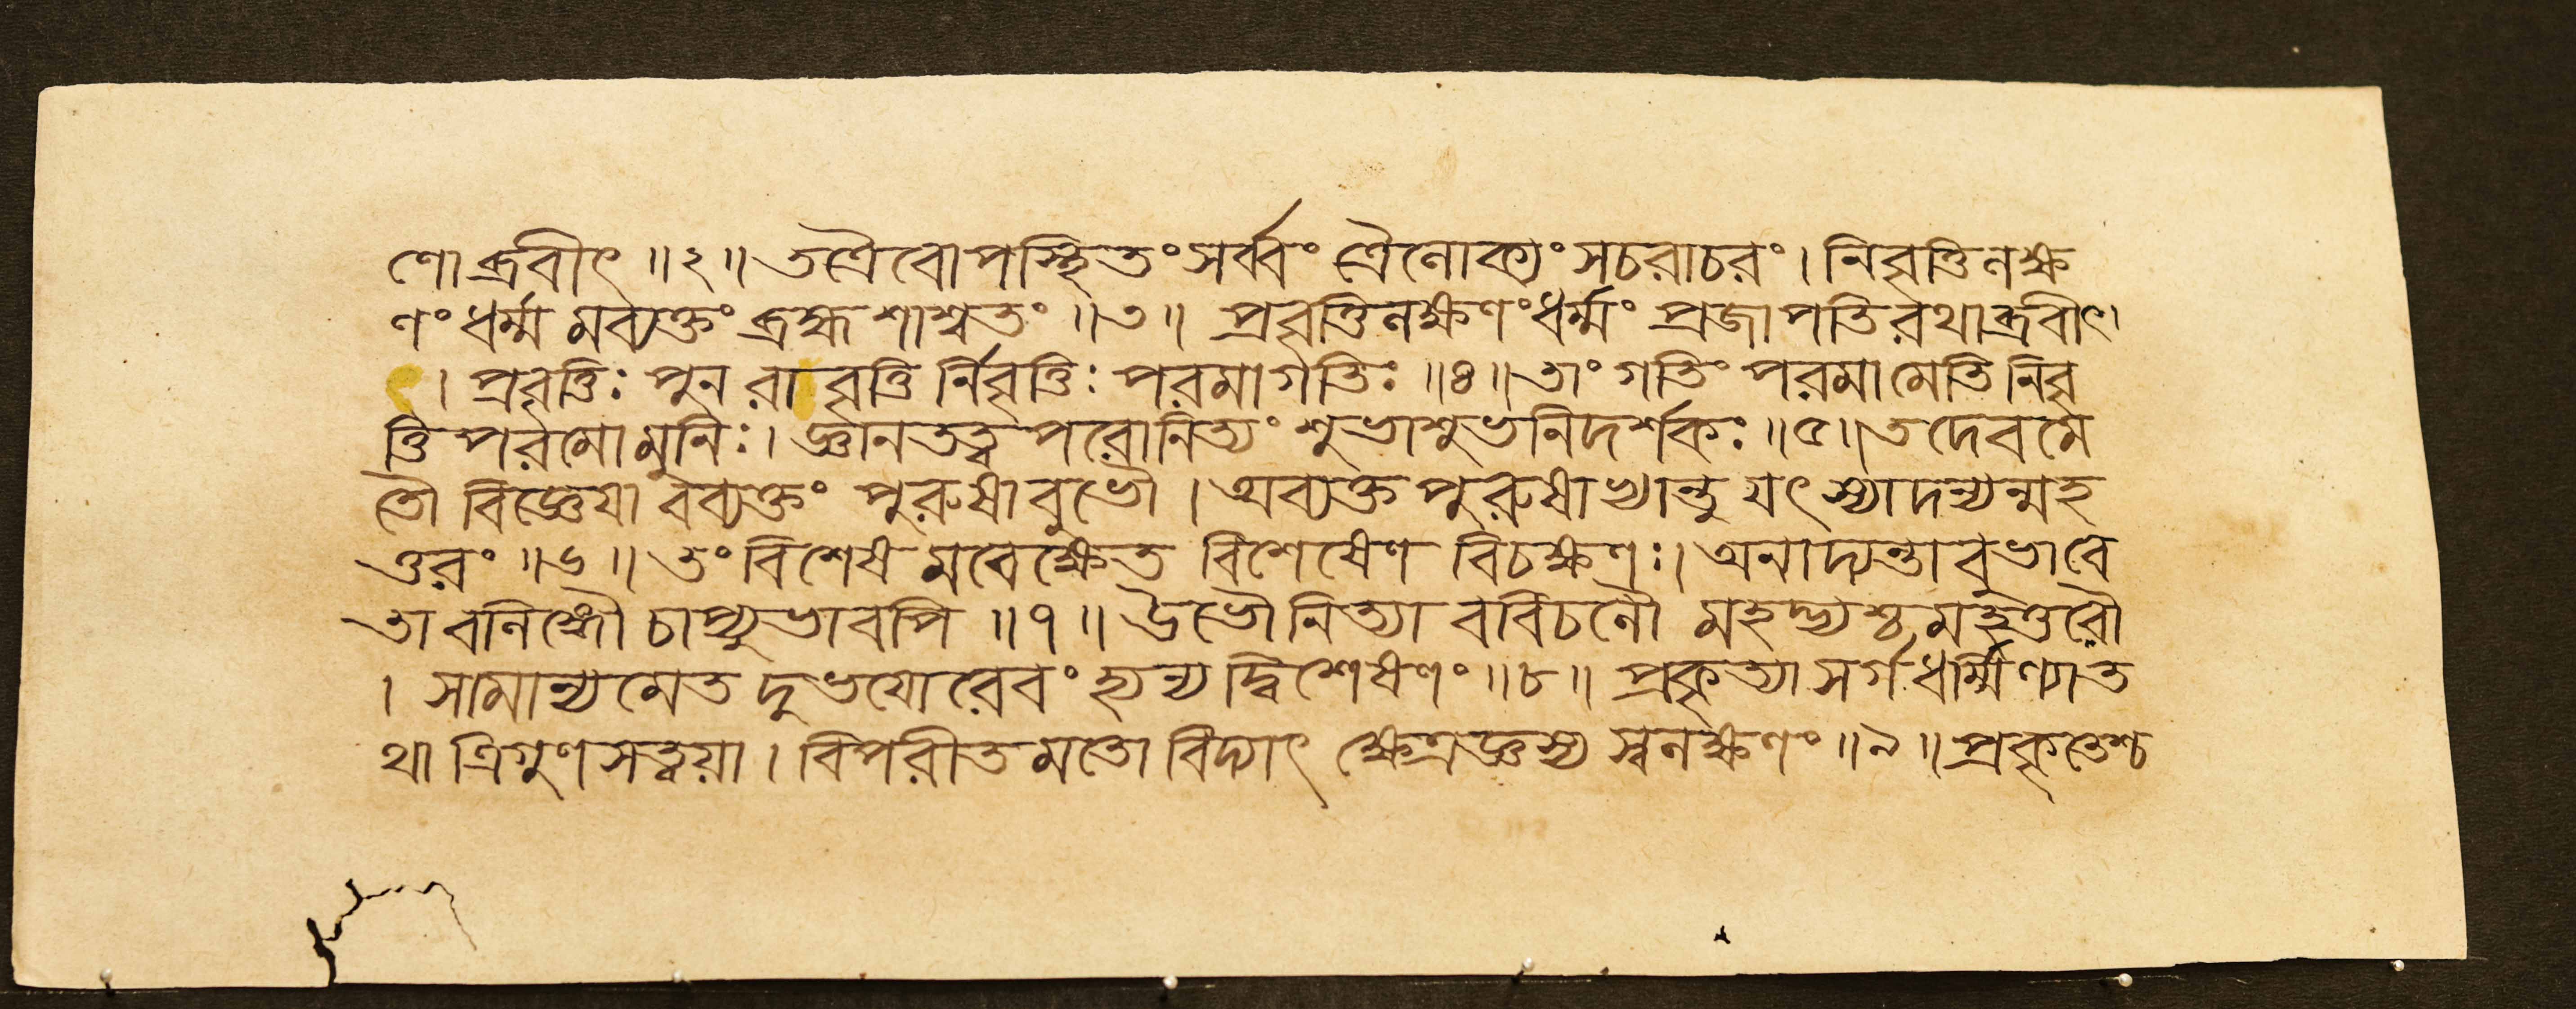 ণোব্রবীৎ ॥২॥ তত্রৈবোপস্থিতং সর্ব্বং ত্রৈলোক্যং সচরাচরং । নিবৃত্তিলক্ষ
ণং ধর্ম্ম মব্যক্তং ব্রহ্ম শাশ্বতং ॥৩॥ প্রবৃত্তিলক্ষণং ধর্ম্মং প্রজাপতিরথাব্রবীৎ।
। প্রবৃত্তিঃ পুনরাবৃত্তি র্নিবৃত্তিঃ পরমাগতিঃ ॥৪॥ তাং গতিং পরমামেতি নিবৃ
ত্তি পরমো মুনিঃ। জ্ঞানতত্ত্বপরোনিত্যং শুভাশুভনিদর্শকঃ ॥৫॥ তদেবমে
তৌ বিজ্ঞেয়া বব্যক্তং পুরুষাবুভৌ । অব্যক্ত পুরুষাখ্যান্তু যৎ স্যাদন্যন্মহ
ত্তরং ॥৬॥ তং বিশেষ মবেক্ষেত বিশেষেণ বিচক্ষণঃ। অনাদ্যন্তাবুভাবে
তাবলিঙ্গৌ চাপ্যুভাবপি ॥৭॥ উভৌ নিত্যা ববিচলৌ মহদ্ভ্যশ্চ মহত্তরৌ
। সামান্যমেত দুভয়োরেবং হ্যন্যদ্বিশেষণং ॥৮॥ প্রকৃত্যা সর্গধর্ম্মিণ্যাত
থা ত্রিগুণসত্ত্বয়া । বিপরীতমতো বিদ্যাৎ ক্ষেত্রজ্ঞস্য স্বলক্ষণং ॥৯॥ প্রকৃতেশ্চ